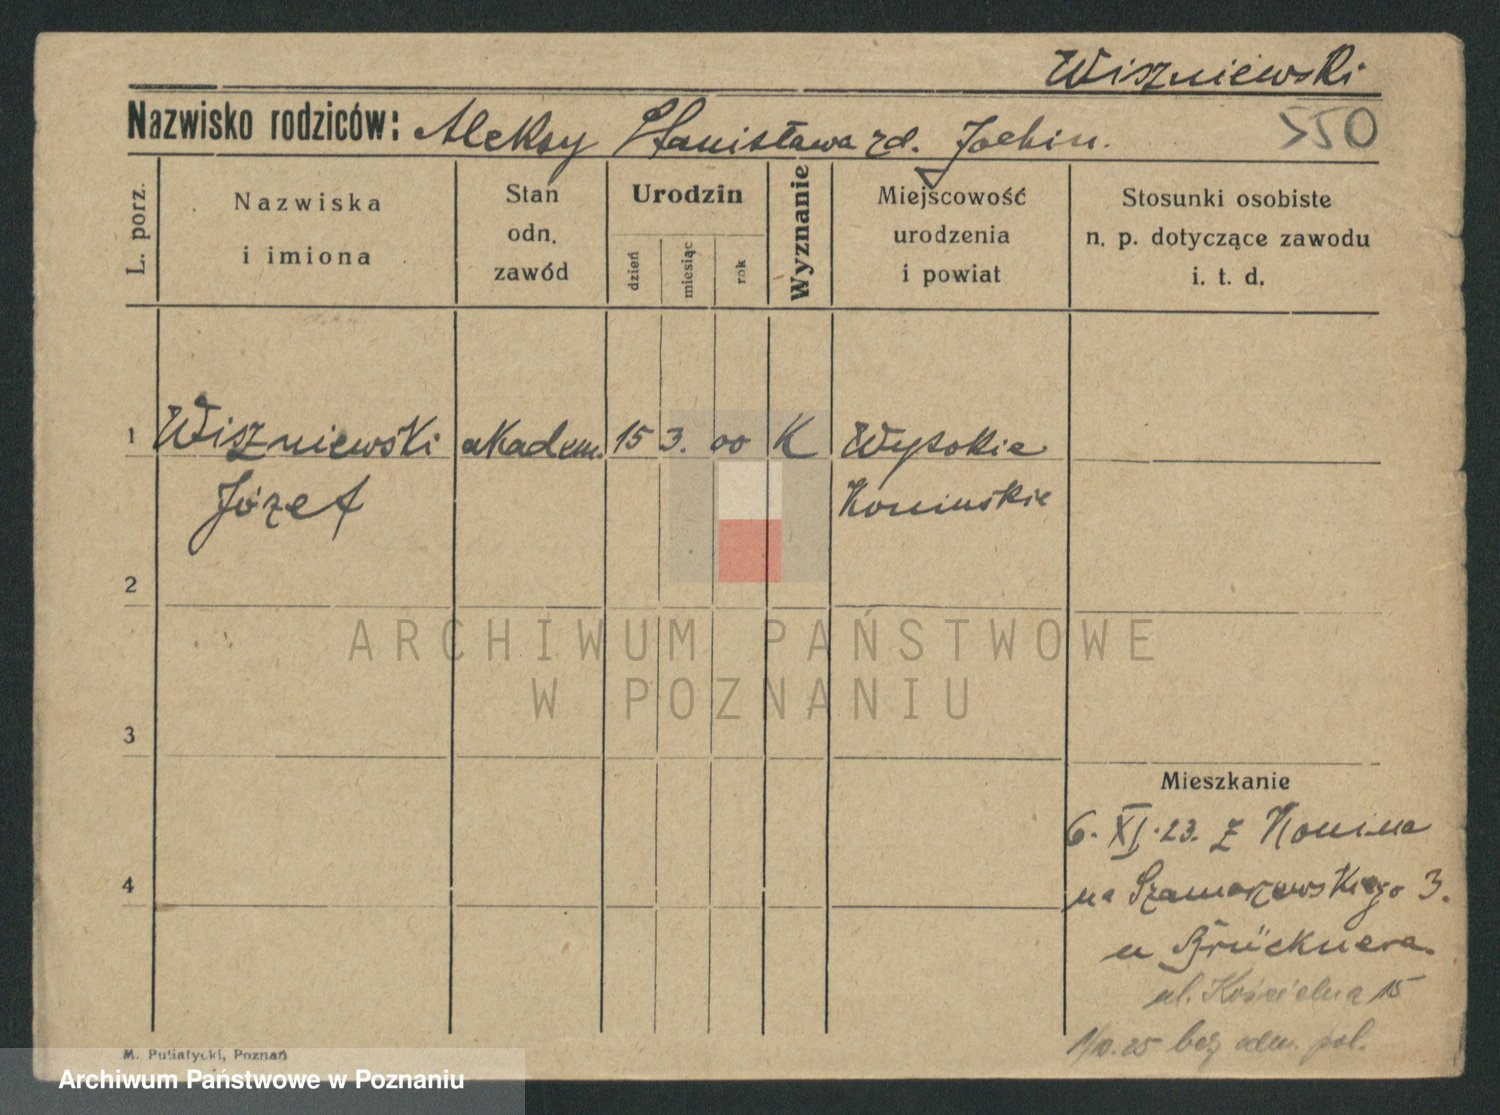 Wiszniewski
Nazwisko rodziców: Aleksy Stanisława zd. Jochin.
550
L. porz.
Nazwiska
i imiona
Stan
odn.
zawód
Urodzin
dzień
miesiąc
rok
Wyznanie
Miejscowość
urodzenia
i powiat
Stosunki osobiste
n. p. dotyczące zawodu
i. t. d.
1 Wiszniewski akadem. 15 3. 00 K Wysokie
Józef Konińskie
2
ARCHIWUM PAŃSTWOWE
W POZNANIU
3
Mieszkanie
6. XI. 23. z Konina
4
na Szamarzewskiego 3.
u Brücknera.
ul. Kościelna 15
1/10. 25 bez odm. pol.
M. Pułiatycki, Poznań
Archiwum Państwowe w Poznaniu